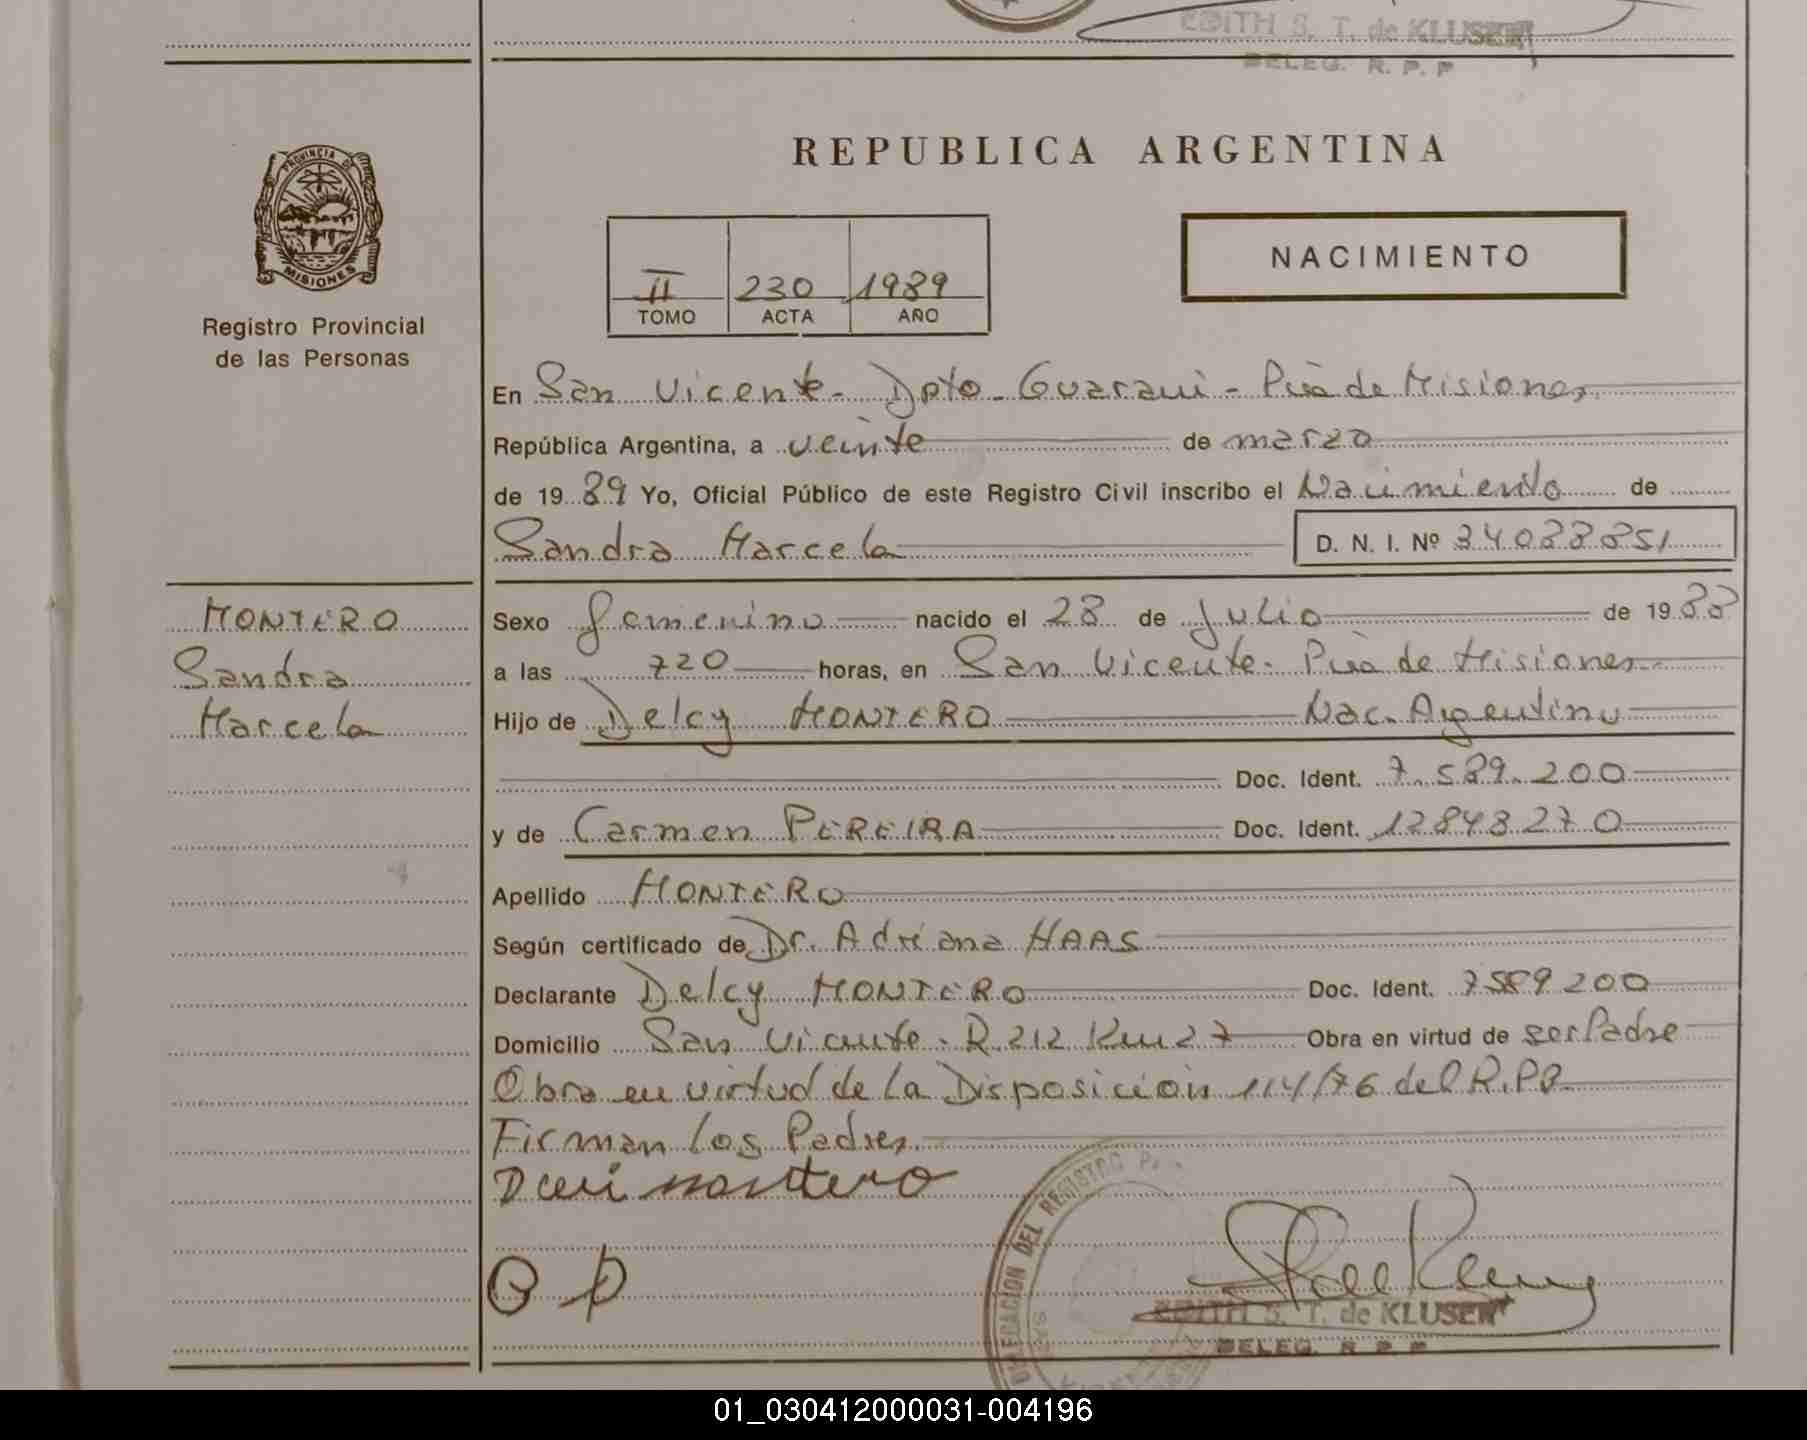 EDITH S. T. de KLUSER
DELEG. R. P. P
PROVINCIA DE
MISIONES
Registro Provincial
de las Personas
REPUBLICA ARGENTINA
NACIMIENTO
II 230 1989
TOMO ACTA AÑO
En San Vicente - Dpto - Guarani - Pcia de Misiones
República Argentina, a veinte de marzo
de 19 89 Yo, Oficial Público de este Registro Civil inscribo el Nacimiento de
Sandra Marcela D. N. I. Nº 34088851
MONTERO
Sandra
Marcela
Sexo femenino nacido el 28 de Julio de 19 88
a las 720 horas, en San Vicente - Pcia de Misiones
Hijo de Delcy MONTERO Nac. Argentino
Doc. Ident. 7.589.200
y de Carmen PEREIRA Doc. Ident. 12848270
Apellido MONTERO
Según certificado de Dr. Adriana HAAS
Declarante Delcy MONTERO Doc. Ident. 7589200
Domicilio San Vicente - R 212 Km 27 Obra en virtud de ser Padre
Obra en virtud de la Disposición 114/76 del R.P.P.
Firman los Padres
montero
DELEGACION DEL REGISTRO
C P
EDITH S. T. de KLUSER
DELEG. R P P
01_030412000031-004196